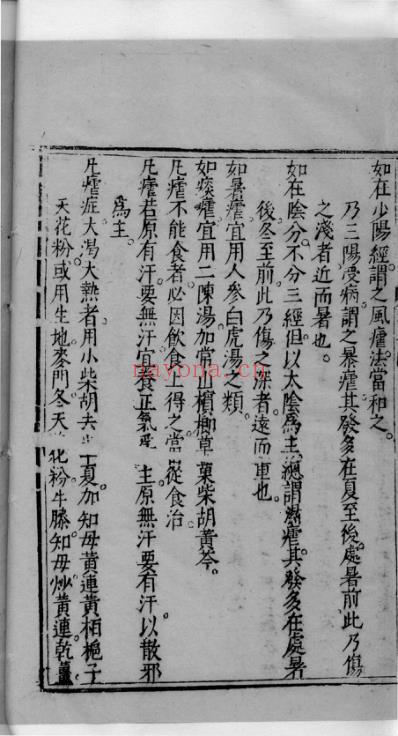 如在少陽經謂之風瘧法當和之
乃三陽受病謂之暴瘧其發多在夏至後處暑前此乃傷
之淺者近而暑也
如在陰分不分三經但以太陰爲主總謂瘧其發多在處暑
後冬至前此乃傷之深者遠而重也
如暑瘧宜用人參白虎湯之類
如痰瘧宜用二陳湯加常山檳榔草菓柴胡黃芩
凡瘧不能食者必因飲食上得之當從食治
凡瘧若原有汗要無汗宜養正氣爲主原無汗要有汗以散邪
爲主
凡瘧症大渴大熱者用小柴胡去半夏加知母黃連黃栢梔子
天花粉或用生地麥門冬天花粉牛膝知母炒黃連乾薑
nayona.cn